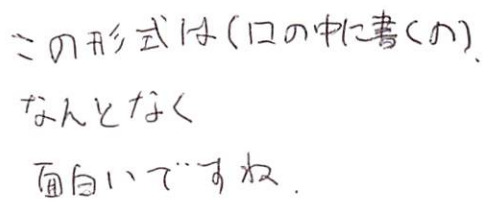 この形式は(口の中に書くの)、
なんとなく
面白いですね.